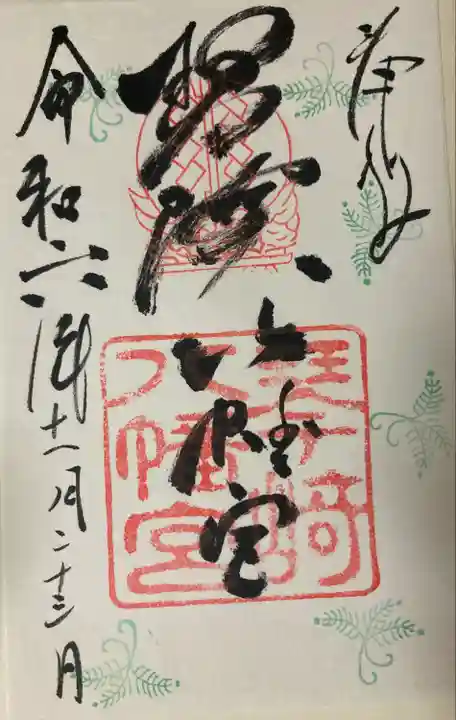 奉拝
琴崎八幡宮
琴崎
八幡宮
令和六年十一月二十三日